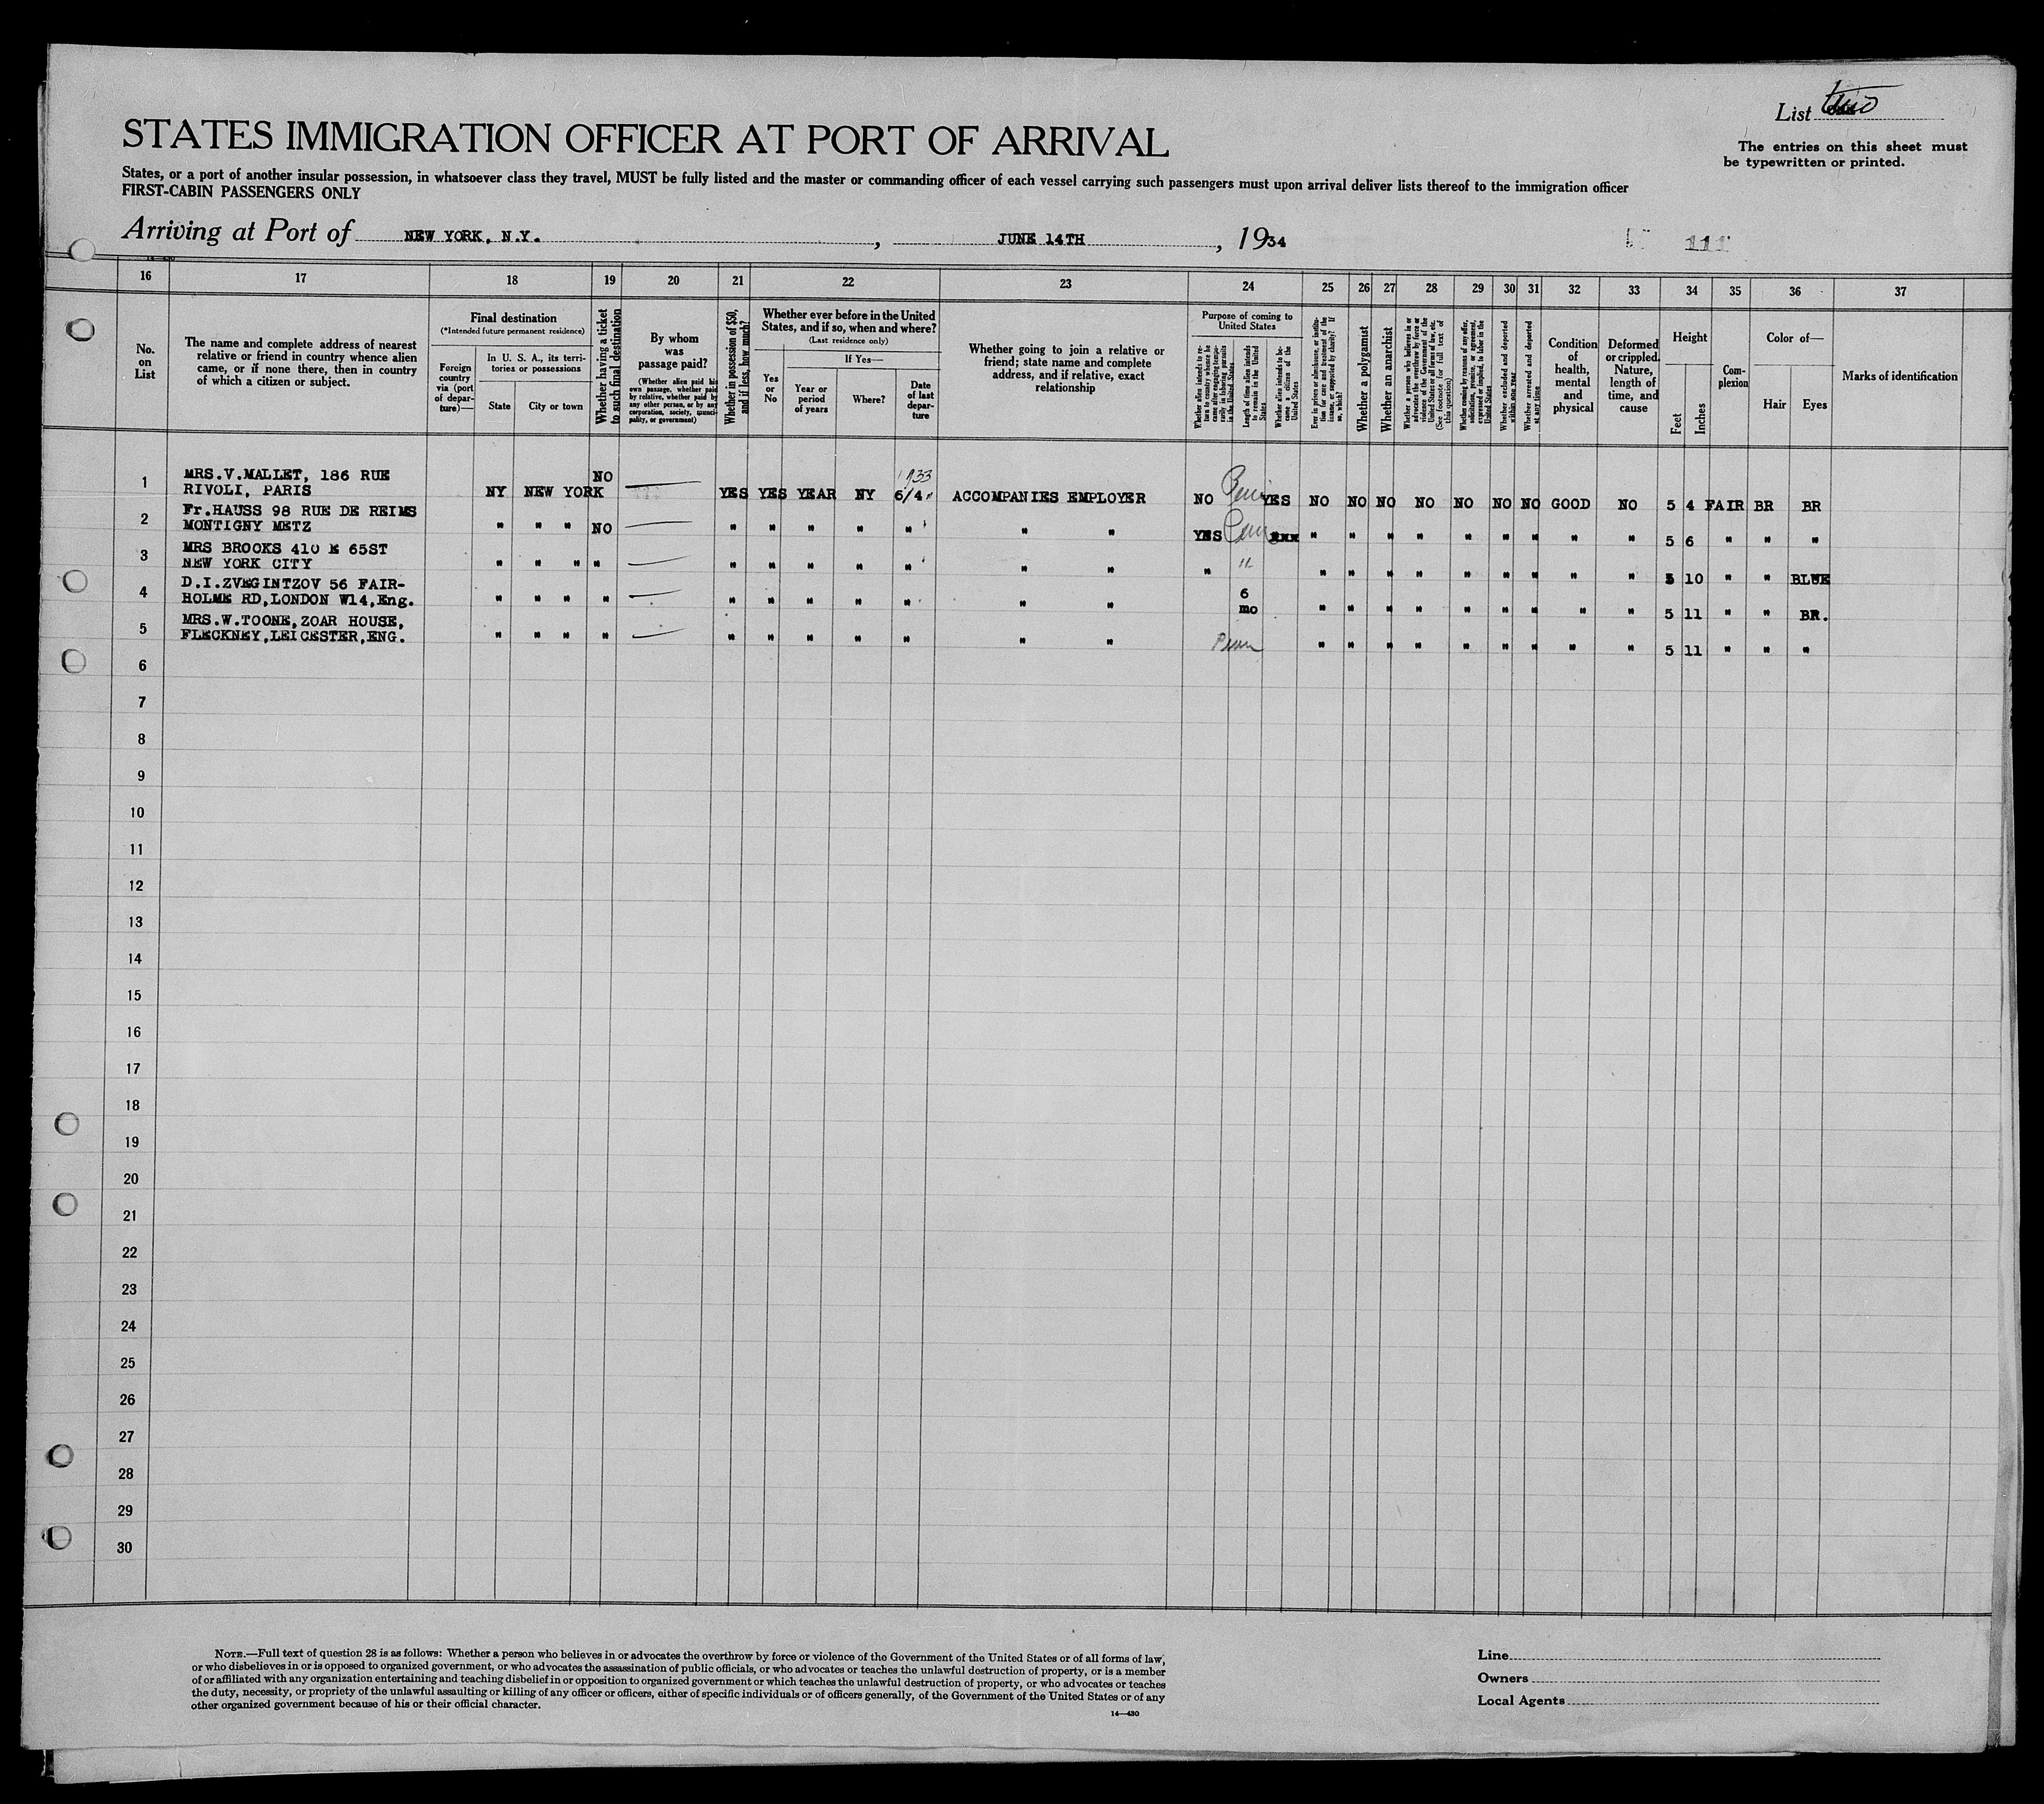 List two
STATES IMMIGRATION OFFICER AT PORT OF ARRIVAL
The entries on this sheet must
be typewritten or printed.
States, or a port of another insular possession, in whatsoever class they travel, MUST be fully listed and the master or commanding officer of each vessel carrying such passengers must upon arrival deliver lists thereof to the immigration officer
FIRST-CABIN PASSENGERS ONLY
Arriving at Port of NEW YORK, N.Y. , JUNE 14TH , 1934
111
16 17 18 19 20 21 22 23 24 25 26 27 28 29 30 31 32 33 34 35 36 37
No.
on
List
The name and complete address of nearest
relative or friend in country whence alien
came, or if none there, then in country
of which a citizen or subject.
Final destination
(*Intended future permanent residence)
Foreign
country
via (port
of depar-
ture)—
In U. S. A., its terri-
tories or possessions
State
City or town
Whether having a ticket
to such final destination
By whom
was
passage paid?
(Whether alien paid his
own passage, whether paid
by relative, whether paid by
any other person, or by any
corporation, society, munici-
pality, or government)
Whether in possession of $50,
and if less, how much?
Whether ever before in the United
States, and if so, when and where?
(Last residence only)
Yes
or
No
If Yes—
Year or
period
of years
Where?
Date
of last
depar-
ture
Whether going to join a relative or
friend; state name and complete
address, and if relative, exact
relationship
Purpose of coming to
United States
Whether alien intends to re-
turn to country whence he
came after engaging tempo-
rarily in laboring pursuits
in the United States
Length of time alien intends
to remain in the United
States
Whether alien intends to be-
come a citizen of the
United States
Ever in prison or almshouse, or institu-
tion for care and treatment of the
insane, or supported by charity? If
so, which?
Whether a polygamist
Whether an anarchist
Whether a person who believes in or
advocates the overthrow by force or
violence of the Government of the
United States or all forms of law, etc.
(See footnote for full text of
this question)
Whether coming by reasons of any offer,
solicitation, promise, or agreement,
expressed or implied, to labor in the
United States
Whether excluded and deported
within one year
Whether arrested and deported
at any time
Condition
of
health,
mental
and
physical
Deformed
or crippled.
Nature,
length of
time, and
cause
Height
Feet
Inches
Com-
plexion
Color of—
Hair
Eyes
Marks of identification
1 MRS.V.MALLET, 186 RUE NO 1933
RIVOLI, PARIS NY NEW YORK YES YES YEAR NY 6/4 ACCOMPANIES EMPLOYER NO YES NO NO NO NO NO NO NO GOOD NO 5 4 FAIR BR BR
2 Fr.HAUSS 98 RUE DE REIMS
MONTIGNY METZ " " " NO " " " " " " " YES xxx " " " " " " " " " 5 6 " " "
3 MRS BROOKS 410 E 65ST
NEW YORK CITY " " " " " " " " " " " " " " " " " " " " " " 5 10 " " BLUE
4 D.I.ZVEGINTZOV 56 FAIR-
HOLME RD,LONDON W14,Eng. " " " " " " " " " " " 6 mo " " " " " " " " " 5 11 " " BR.
5 MRS.W.TOONE,ZOAR HOUSE,
FLECKNEY,LEICESTER,ENG. " " " " " " " " " " " " " " " " " " " " 5 11 " " "
6
7
8
9
10
11
12
13
14
15
16
17
18
19
20
21
22
23
24
25
26
27
28
29
30
NOTE.—Full text of question 28 is as follows: Whether a person who believes in or advocates the overthrow by force or violence of the Government of the United States or of all forms of law,
or who disbelieves in or is opposed to organized government, or who advocates the assassination of public officials, or who advocates or teaches the unlawful destruction of property, or is a member
of or affiliated with any organization entertaining and teaching disbelief in or opposition to organized government or which teaches the unlawful destruction of property, or who advocates or teaches
the duty, necessity, or propriety of the unlawful assaulting or killing of any officer or officers, either of specific individuals or of officers generally, of the Government of the United States or of any
other organized government because of his or their official character.
14—430
Line
Owners
Local Agents